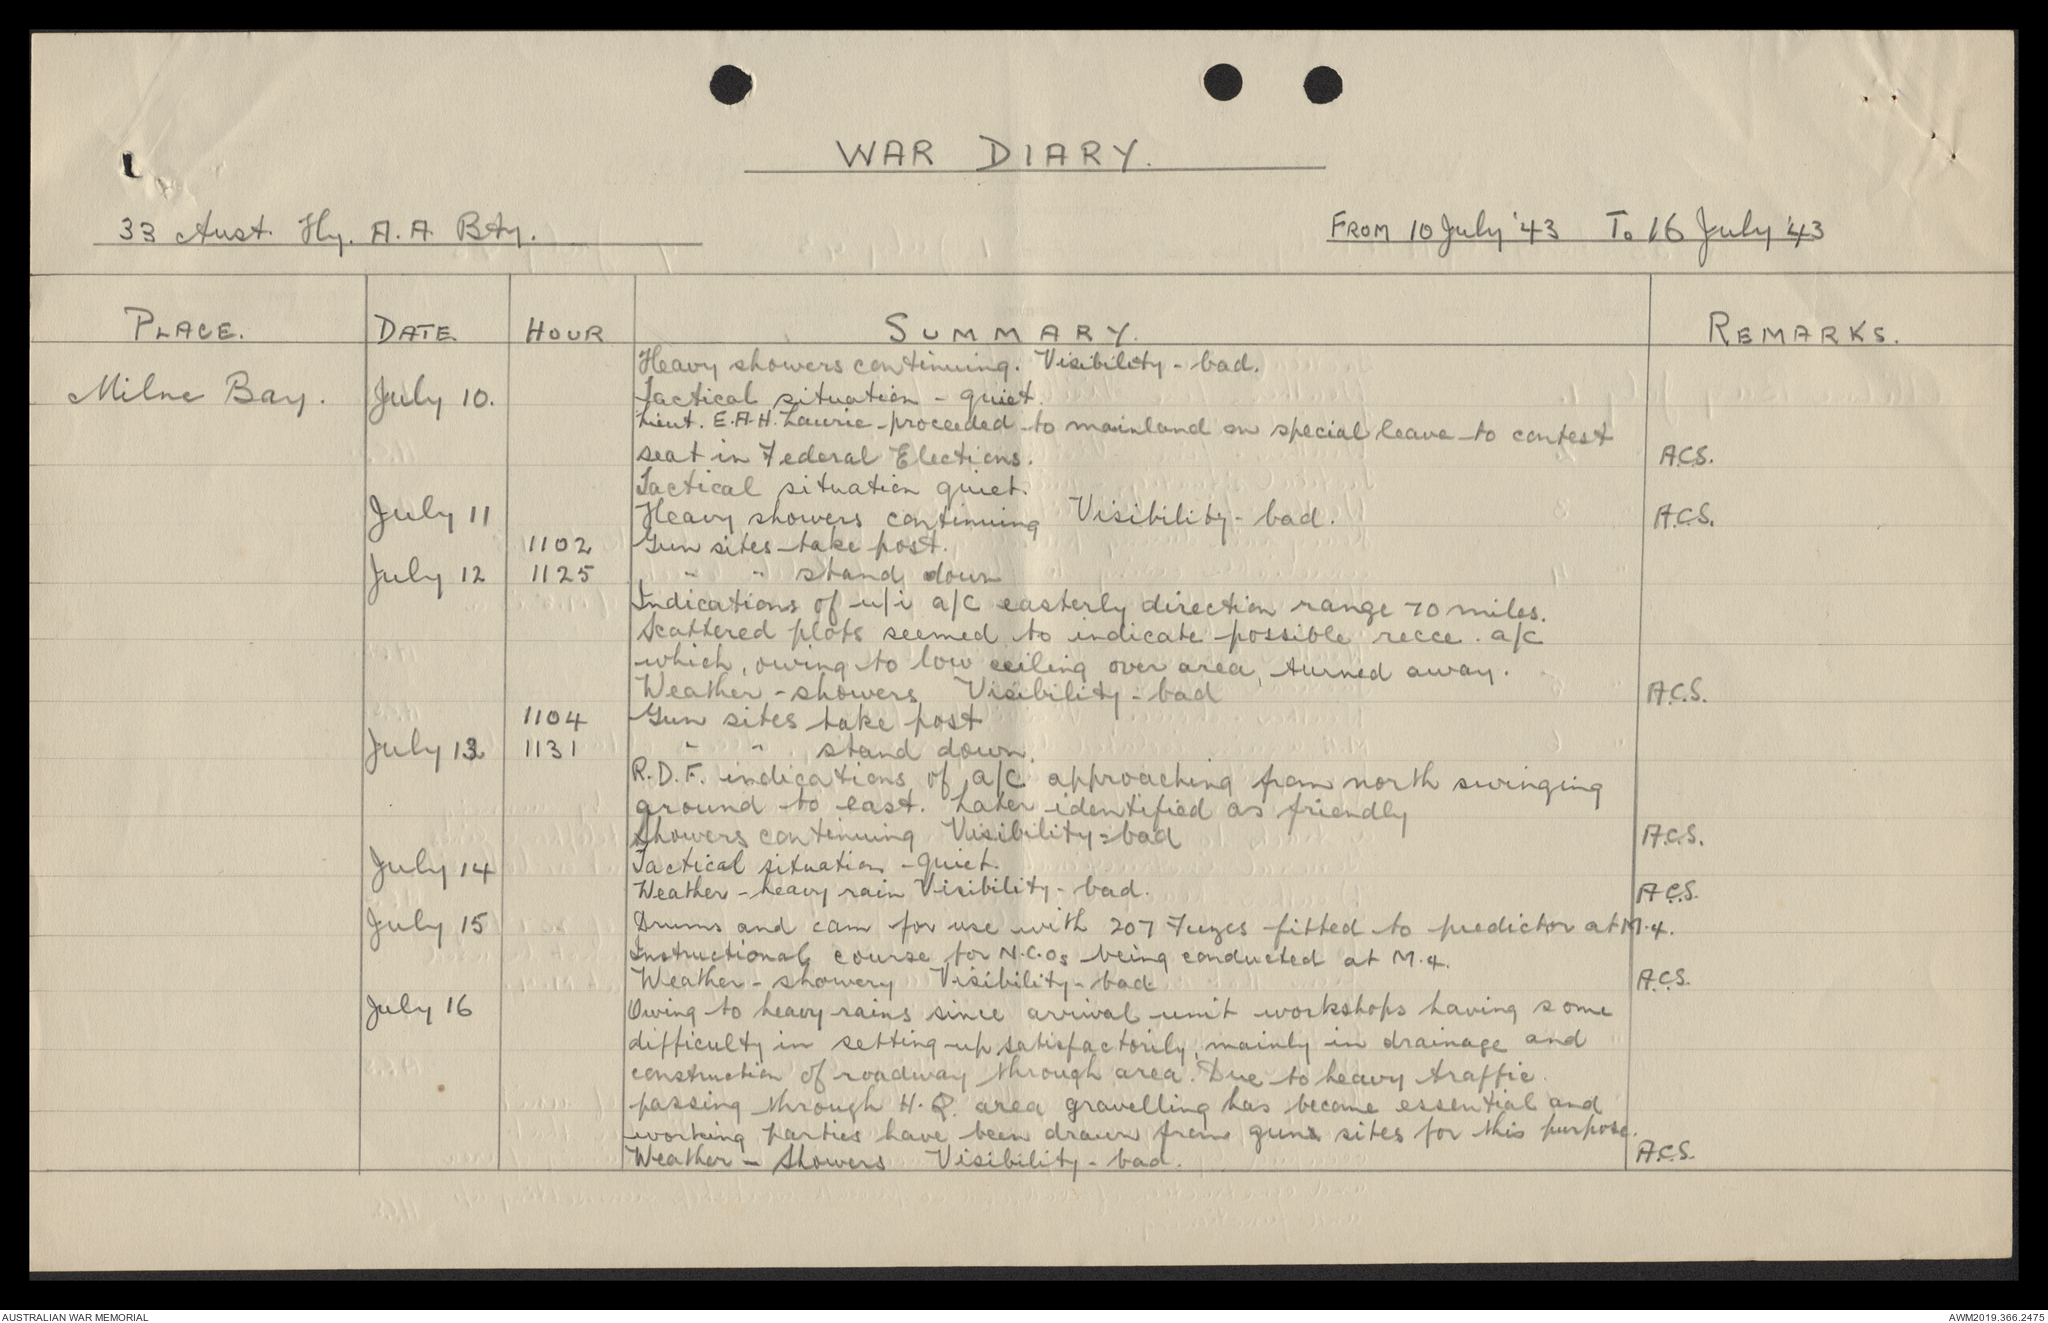 WAR DIARY.
33 Aust. Hy. A.A. Bty.
FROM 10 July '43 To 16 July '43
PLACE. DATE. HOUR SUMMARY. REMARKS.
Heavy showers continuing. Visibility - bad.
Milne Bay. July 10. Tactical situation - quiet.
Lieut. E.A.H. Laurie proceeded to mainland on special leave to contest
seat in Federal Elections. A.C.S.
Tactical situation quiet.
July 11 Heavy showers continuing Visibility - bad. A.C.S.
1102 Gun sites take post.
July 12 1125 " " stand down
Indications of u/i a/c easterly direction range 70 miles.
Scattered plots seemed to indicate possible recce. a/c
which, owing to low ceiling over area, turned away.
Weather - showers Visibility - bad A.C.S.
1104 Gun sites take post
July 13 1131 " " stand down.
R.D.F. indications of a/c approaching from north swinging
ground to east. Later identified as friendly
Showers continuing Visibility - bad A.C.S.
July 14 Tactical situation - quiet.
Weather - heavy rain Visibility - bad. A.C.S.
July 15 Drums and cam for use with 207 Fuzes fitted to predictor at M.4.
Instructional course for N.C.Os being conducted at M.4.
Weather - showery Visibility - bad A.C.S.
July 16 Owing to heavy rains since arrival unit workshops having some
difficulty in setting-up satisfactorily, mainly in drainage and
construction of roadway through area. Due to heavy traffic
passing through H.Q. area gravelling has become essential and
working parties have been drawn from guns sites for this purpose.
Weather - Showers Visibility - bad. A.C.S.
AUSTRALIAN WAR MEMORIAL
AWM2019.366.2475